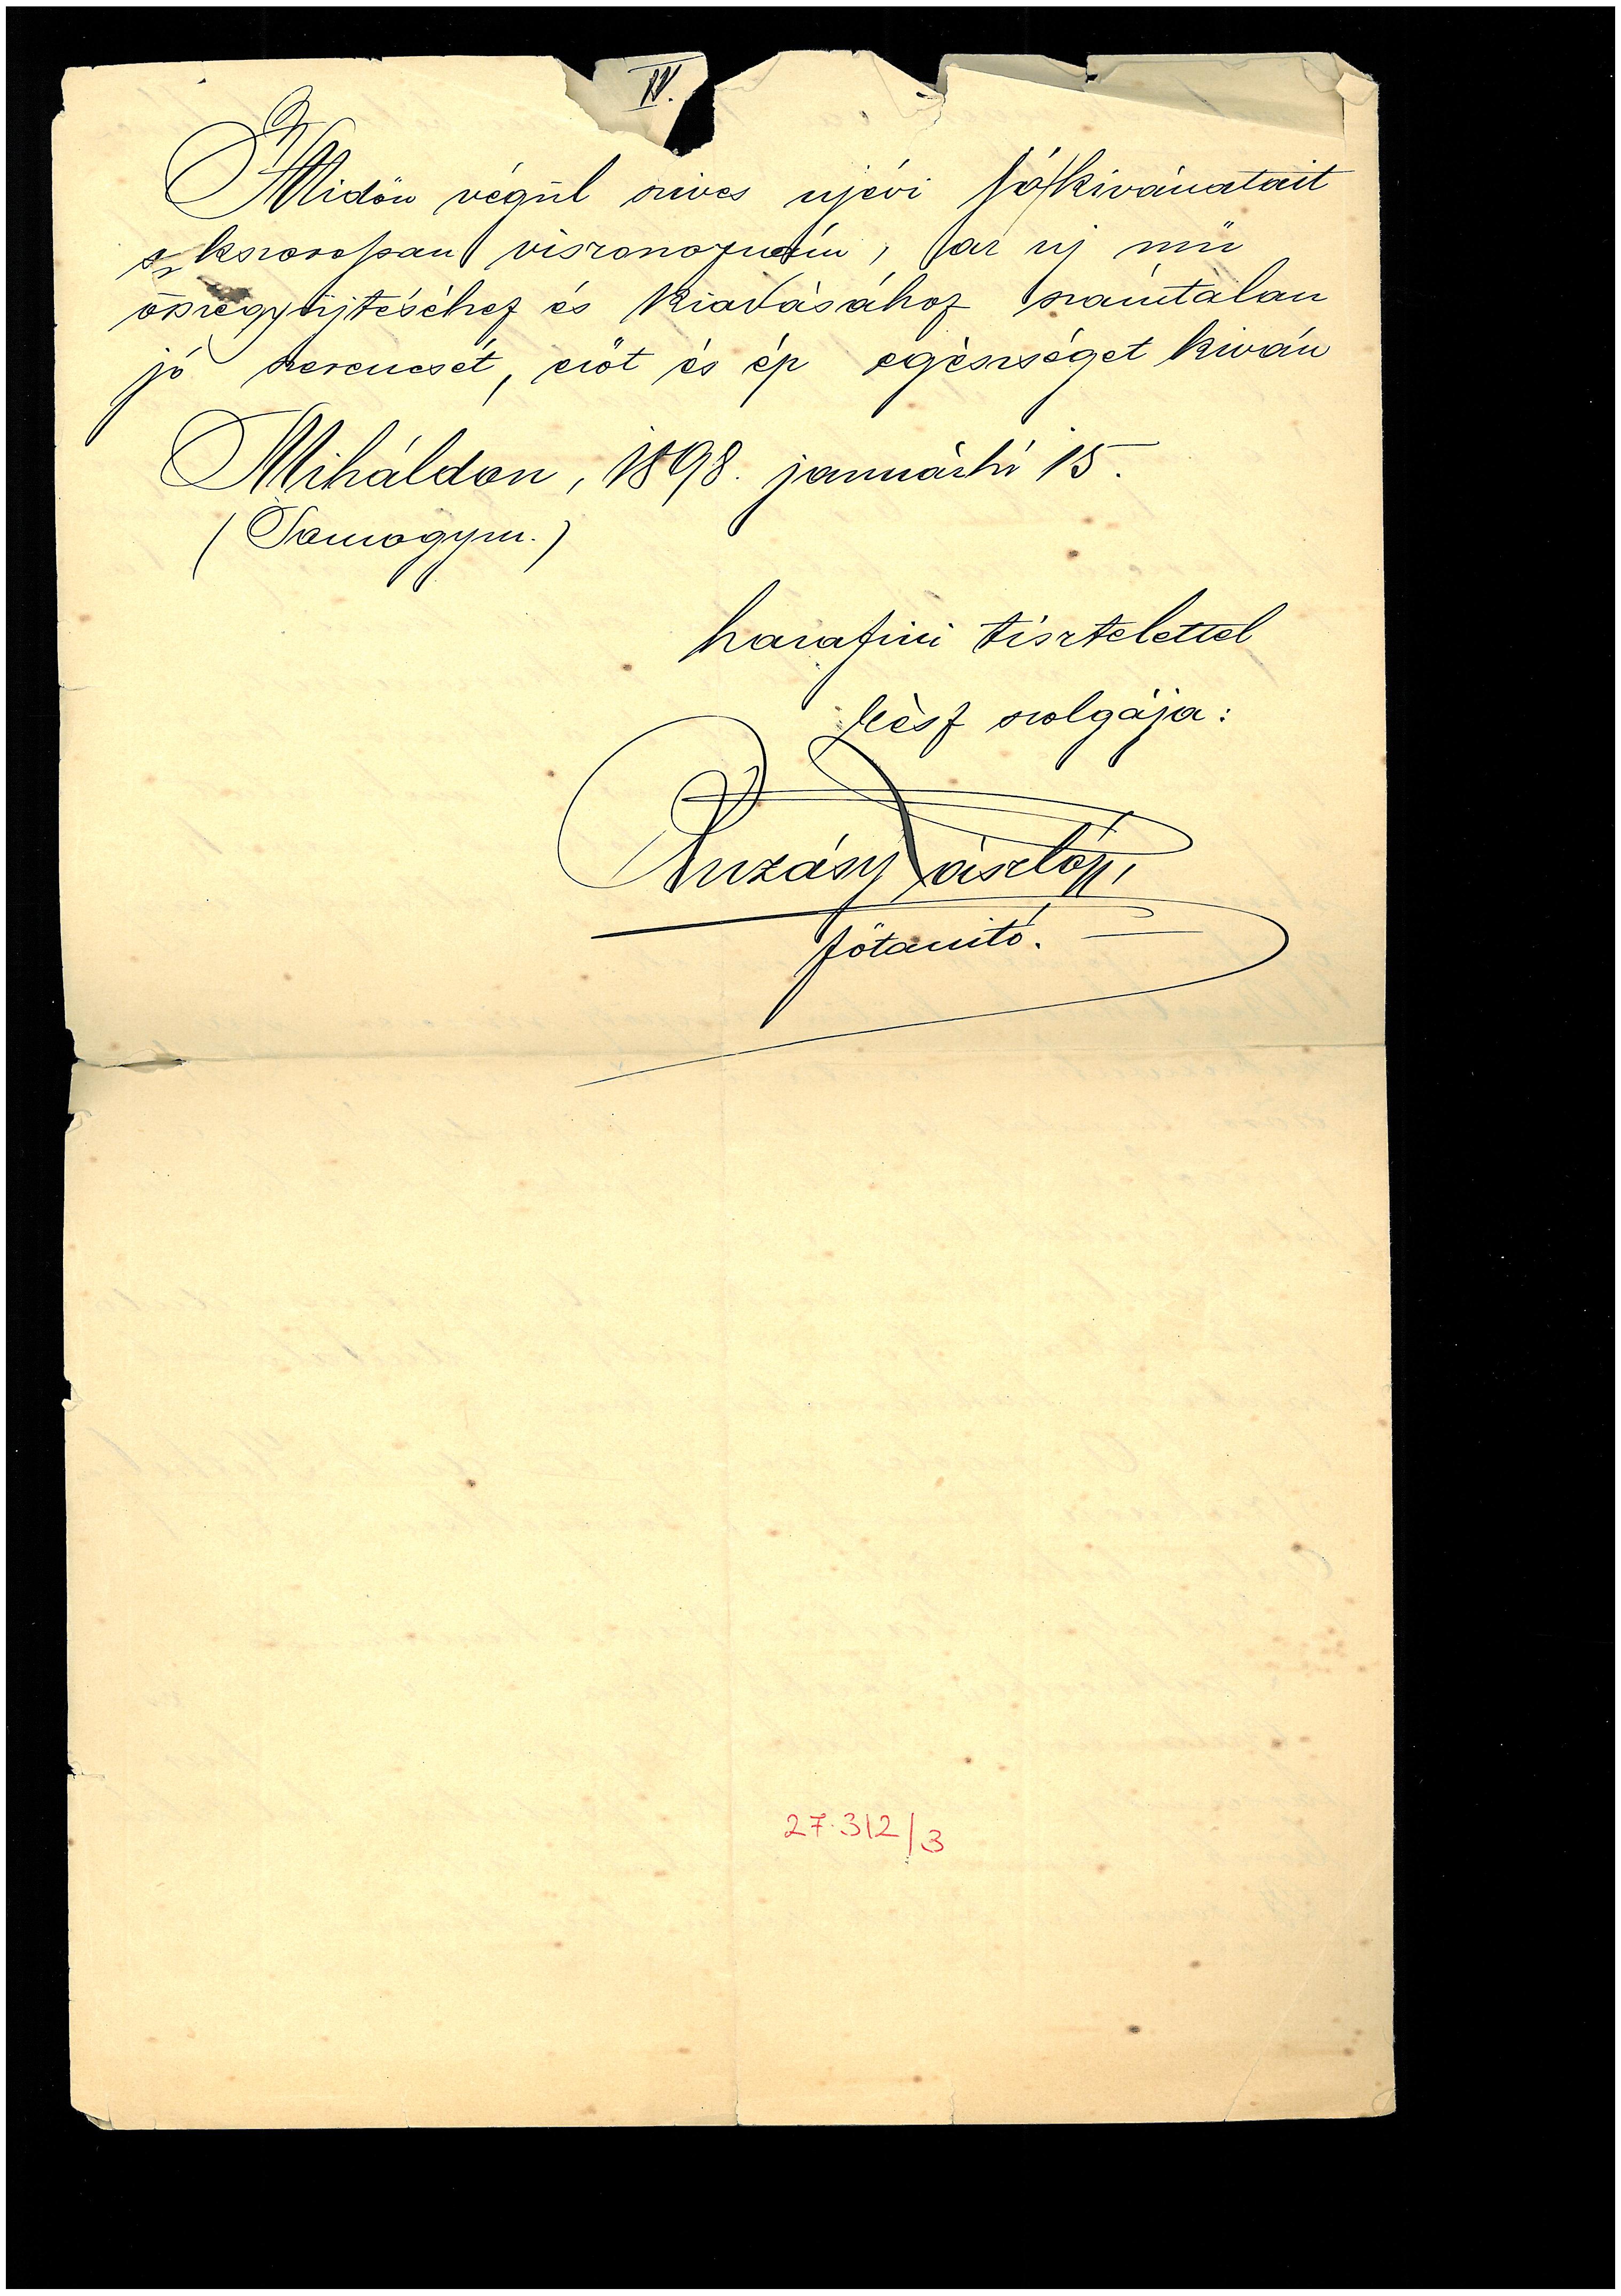 IV.
Midőn végül szives ujévi jókivánatait
s kszorosan viszonoznám, az uj mű
összegyüjtéséhez és kiadásához számtalan
jó szerencsét, erőt és ép egészséget kiván
Miháldon, 1898. januárhó 15.
(Somogym.)
hazafiui tisztelettel
kész szolgája:
Ruzásy László
főtanitó.
27.312/3